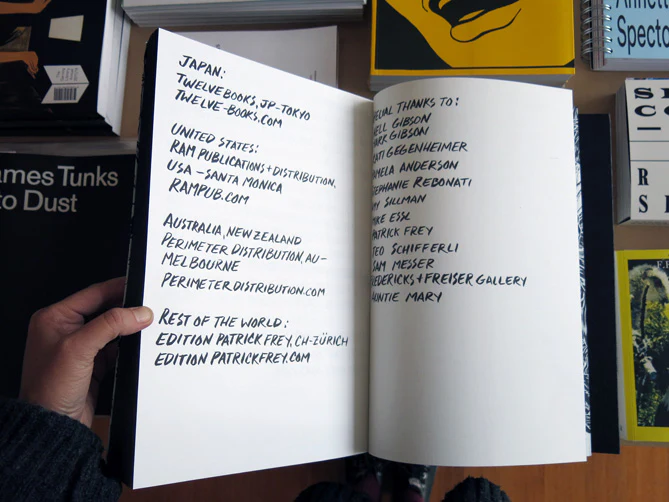 JAPAN:
TWELVEBOOKS, JP-TOKYO
TWELVE-BOOKS.COM
UNITED STATES:
RAM PUBLICATIONS + DISTRIBUTION,
USA – SANTA MONICA
RAMPUB.COM
AUSTRALIA, NEW ZEALAND
PERIMETER DISTRIBUTION, AU-
MELBOURNE
PERIMETERDISTRIBUTION.COM
REST OF THE WORLD:
EDITION PATRICK FREY, CH-ZÜRICH
EDITION PATRICKFREY.COM
THANKS TO:
GIBSON
GIBSON
GEGENHEIMER
ANDERSON
REBONATI
SILLMAN
ESSL
PATRICK FREY
SCHIFFERLI
SAM MESSER
+ FREISER GALLERY
MARY
ames Tunks
to Dust
Annett
Specto